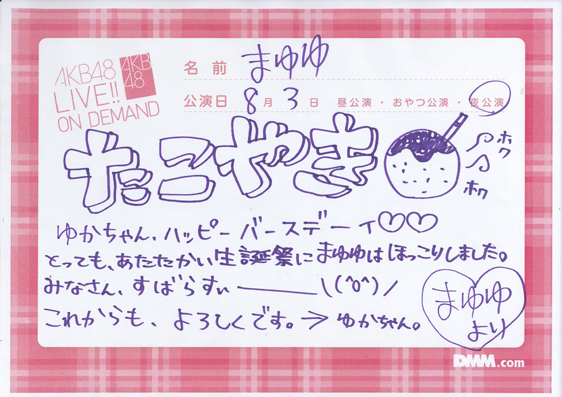 AKB48
LIVE!!
ON DEMAND
AKB
48
名前 まゆゆ
公演日 8月3日 昼公演・おやつ公演・夜公演
たこやき
ホク
ホク
ゆかちゃん、ハッピーバースデーイ♡♡
とっても、あたたかい生誕祭にまゆゆはほっこりしました。
みなさん、すばらすぃ――――\(^o^)/
これからも、よろしくです。→ゆかちゃん。
まゆゆ
より
DMM.com